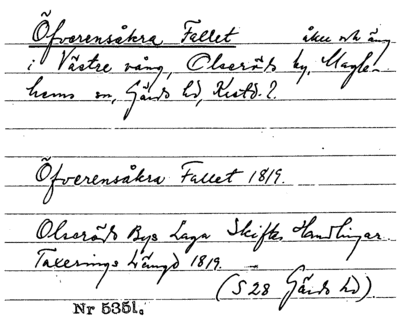 Öfverensåkra Fallet åker och äng
i Västre vång, Olseröds by, Magle-
hems sn, Gärds hd, Krstd. l.
Öfverensåkra Fallet 1819.
Olseröds Bys Laga Skiftes Handlingar.
Taxerings Längd 1819.
(S 28 Gärds hd).
Nr 5351.